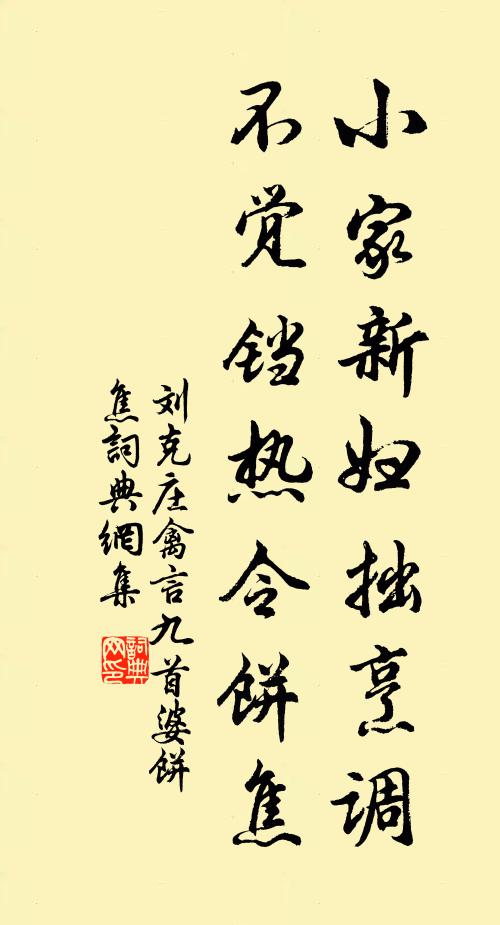 小家新妇拙烹调
不觉铛热令饼焦
刘克庄禽言九首婆饼
焦詞典網集
詞典
网印